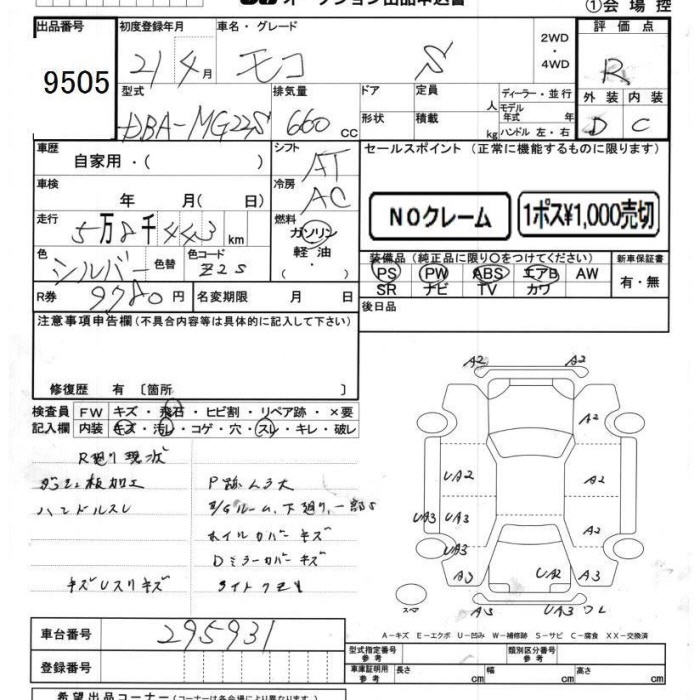 オークション出品申込書
①会場控
出品番号
9505
初度登録年月
21 / 4 月
車名・グレード
モコ S
2WD
・
4WD
評価点
R
外装 内装
D C
型式
DBA-MG22S
排気量
660 cc
ドア
定員
人
ディーラー・並行
モデル
年式 年
形状
積載
kg
ハンドル 左・右
車歴
自家用・( )
シフト
AT
車検
年 月( 日)
冷房
AC
走行
5万8千443 km
燃料
ガソリン
・
軽油
色
シルバー
色替
色コード
Z2S
R券
9780円
名変期限 月 日
セールスポイント (正常に機能するものに限ります)
NOクレーム
1ポス¥1,000売切
装備品(純正品に限り○をつけてください)
新車保証書
PS PW ABS エアB AW
SR ナビ TV カワ
有・無
後日品
注意事項申告欄(不具合内容等は具体的に記入して下さい)
修復歴 有 〔箇所
検査員
記入欄
FW キズ・飛石・ヒビ割・リペア跡・×要
内装 キズ・汚レ・コゲ・穴・スレ・キレ・破レ
R廻り現状
ダッシュ板加工
ハンドルスレ
キズUスリキズ
ホイルカバーキズ
Dミラーカバーキズ
A2 A2
A2
UA2 A2
UA3 UA3
A2 UA3
UA3
A3 UA2 A3
スペア
A3 UA3 ワレ
A-キズ E-エクボ U-凹み W-補修跡 S-サビ C-腐食 XX-交換済
車台番号
295931
登録番号
型式指定番号
参考
類別区分番号
参考
車庫証明用
参考
長さ cm 幅 cm 高さ cm
希望出品コーナー